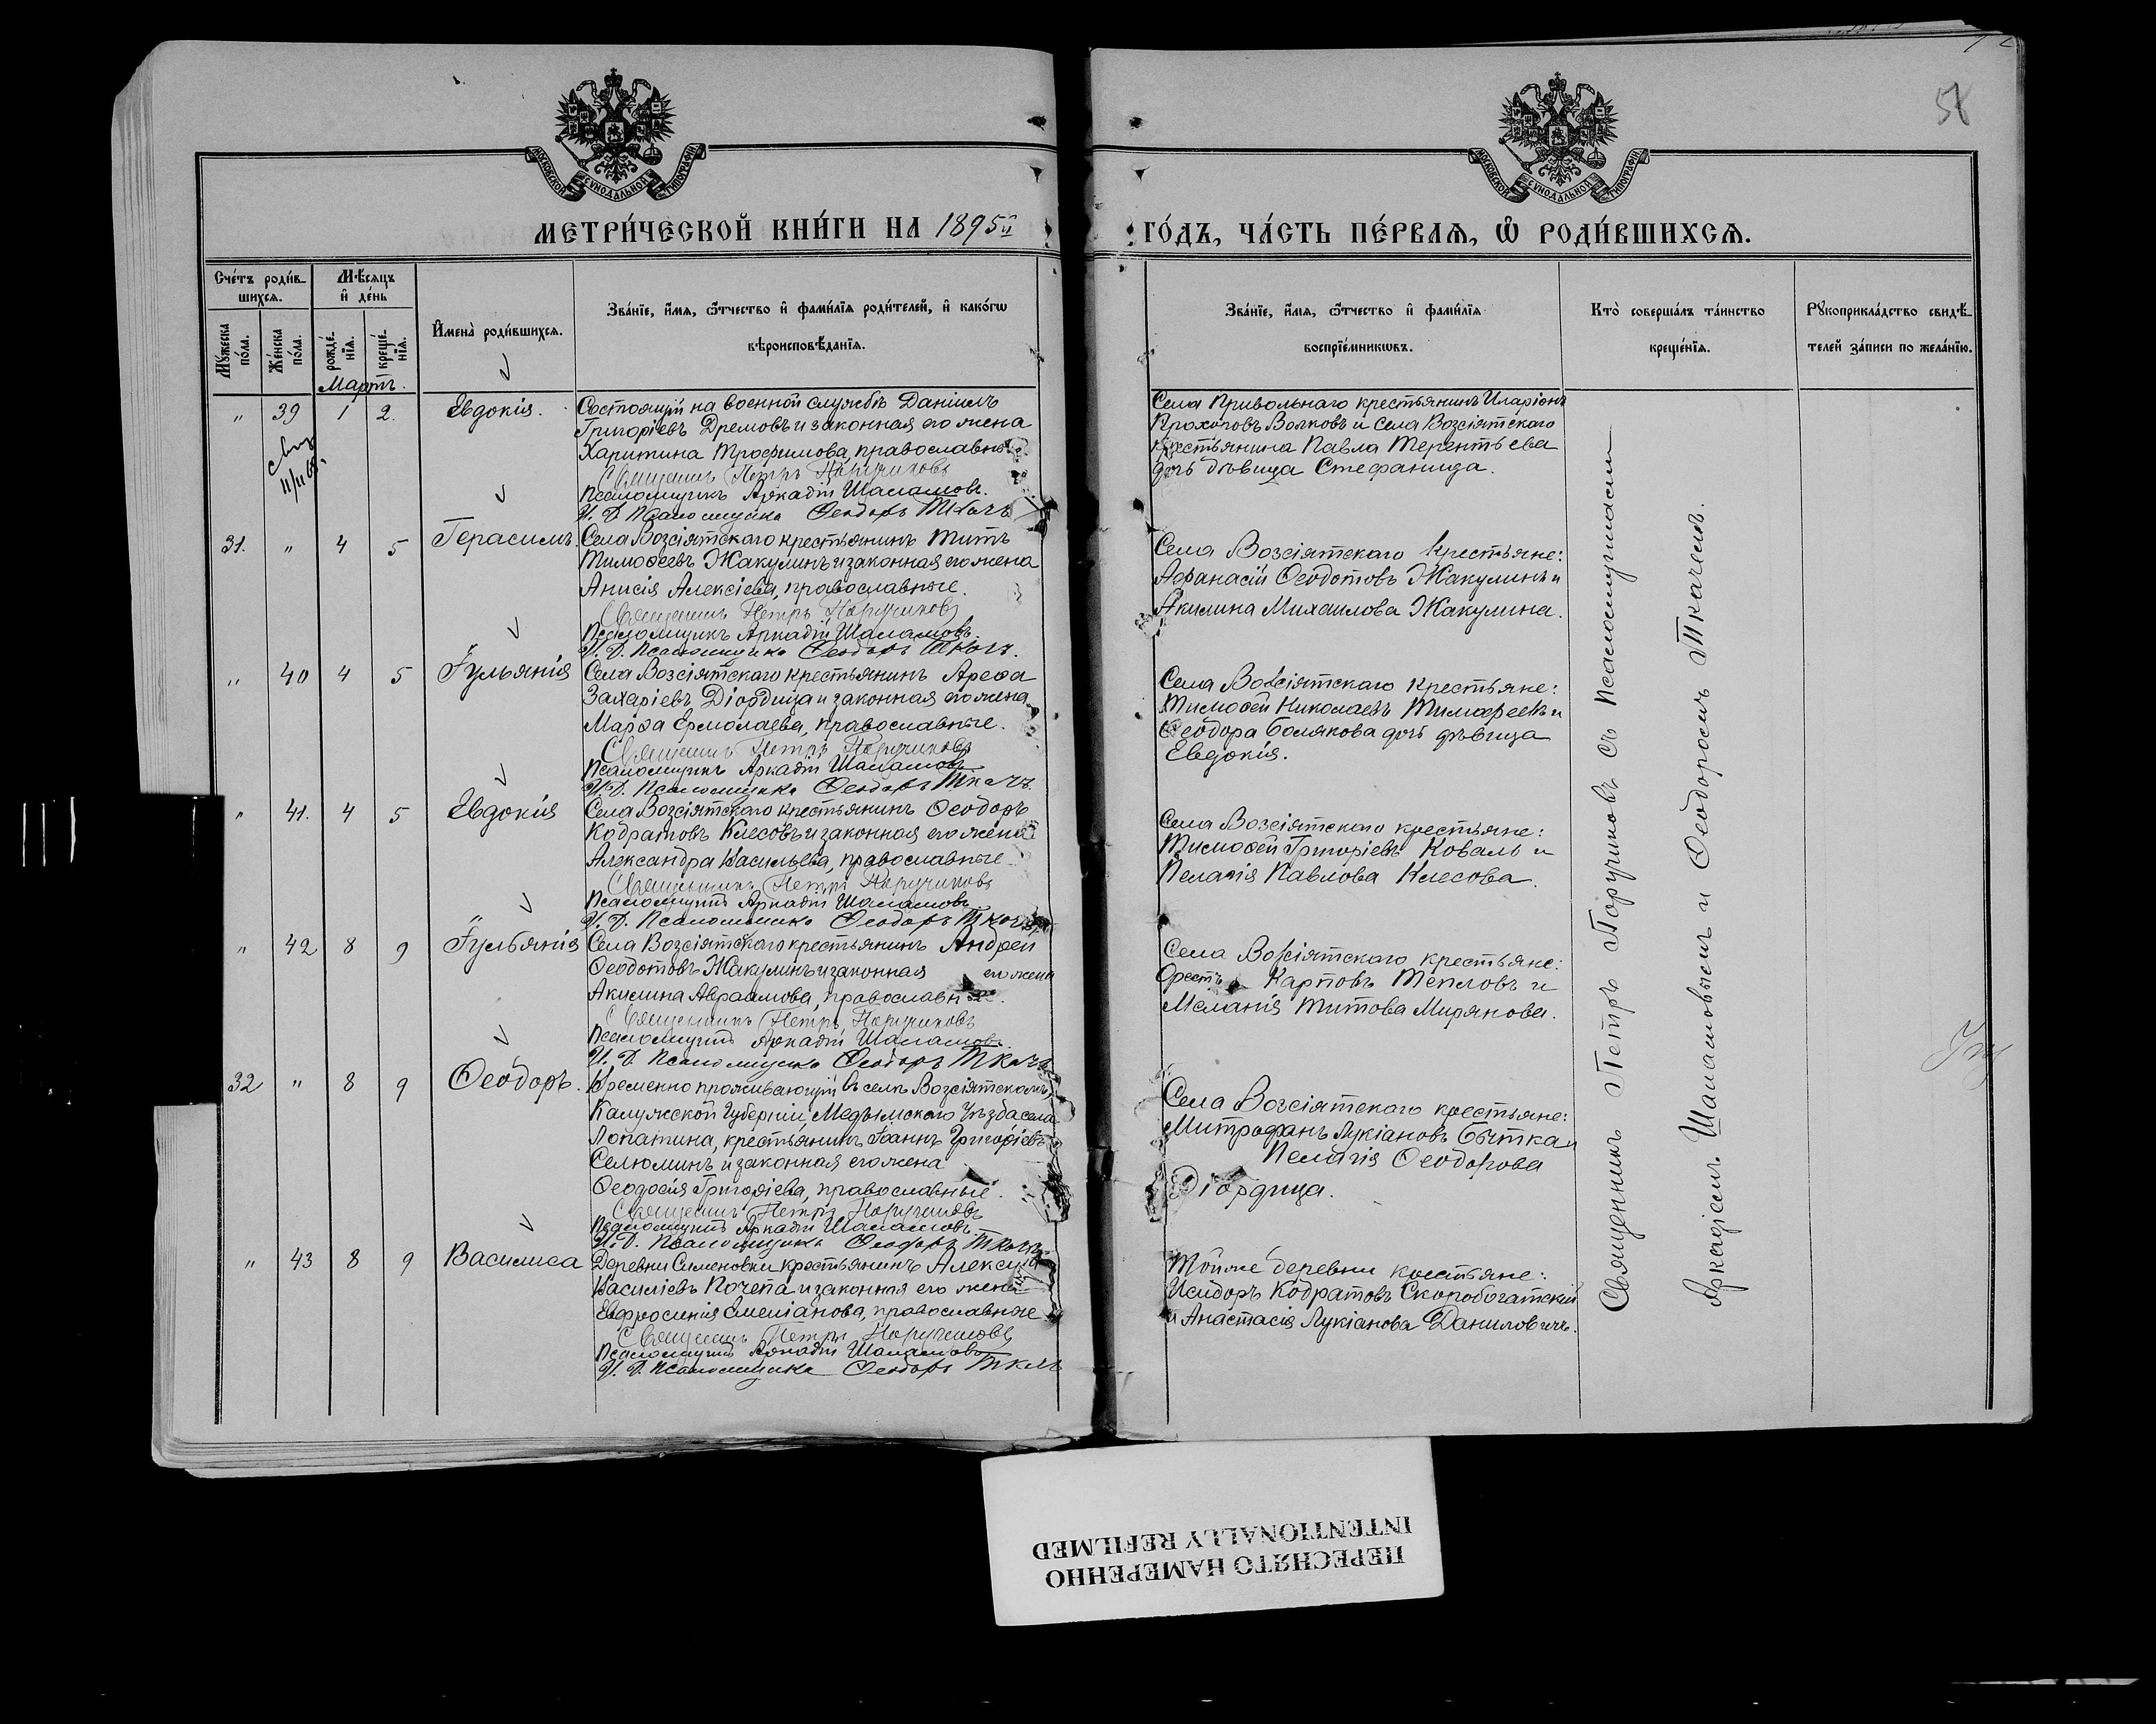 58
МОСКОВСКОЙ СѴНОДАЛЬНОЙ ТИПОГРАФІИ
МОСКОВСКОЙ СѴНОДАЛЬНОЙ ТИПОГРАФІИ
МЕТРИ́ЧЕСКОЙ КНИ́ГИ НА 1895й ГО́ДЪ, ЧА́СТЬ ПЕ́РВАѦ, Ѡ РОДИ́ВШИХСѦ.
Сче́тъ роди́вшихсѧ.
Мꙋ́жеска по́ла.
Же́нска по́ла.
Мѣ́сѧцъ и де́нь
рожде́нїѧ.
креще́нїѧ.
Имена̀ роди́вшихсѧ.
Зва́нїе, и́мѧ, ѻ́тчество и фами́лїѧ роди́телей, и како́гѡ
вѣроисповѣ́данїѧ.
Зва́нїе, и́мѧ, ѻ́тчество и фами́лїѧ
воспрїе́мникѡвъ.
Кто̀ соверша́лъ та́инство
креще́нїѧ.
Рꙋкоприкла́дство свидѣ́телей за́писи по жела́нїю.
Мартъ.
" 39 1 2. Евдокія.
Состоящій на военной службѣ Даніилъ
Григоріевъ Дремовъ и законная его жена
Харитина Трофимова, православные
Священникъ Петръ Поручиковъ
Псаломщикъ Аркадій Шаламовъ.
И. Д. Псаломщика Ѳеодоръ Ткачъ
Села Привольнаго крестьянинъ Иларіонъ
Прохоровъ Волковъ и села Возсіятскаго
крестьянина Павла Терентьева
дочь дѣвица Стефанида.
31. " 4 5 Герасимъ.
Села Возсіятскаго крестьянинъ Титъ
Тимоѳеевъ Жакулинъ и законная его жена
Анисія Алексіева, православные.
Священникъ Петръ Поручиковъ
Псаломщикъ Аркадій Шаламовъ.
И. Д. Псаломщика Ѳеодоръ Ткачъ.
Села Возсіятскаго крестьяне:
Афанасій Ѳеодотовъ Жакулинъ и
Акилина Михаилова Жакулина.
" 40 4 5 Іульянія
Села Возсіятскаго крестьянинъ Арефа
Захаріевъ Діордица и законная его жена
Марѳа Ермолаева, православные.
Священникъ Петръ Поручиковъ
Псаломщикъ Аркадій Шаламовъ
И. Д. Псаломщика Ѳеодоръ Ткачъ.
Села Возсіятскаго крестьяне:
Тимоѳей Николаевъ Тимофеевъ и
Ѳеодора Болякова дочь дѣвица
Евдокія.
" 41. 4 5 Евдокія
Села Возсіятскаго крестьянинъ Ѳеодоръ
Кодратовъ Клесовъ и законная его жена
Александра Васильева, православные
Священникъ Петръ Поручиковъ
Псаломщикъ Аркадій Шаламовъ.
И. Д. Псаломщика Ѳеодоръ Ткачъ
Села Возсіятскаго крестьяне:
Тимоѳей Григоріевъ Коваль и
Пелагія Павлова Клесова.
" 42 8 9 Іульянія
Села Возсіятскаго крестьянинъ Андрей
Ѳеодотовъ Жакулинъ и законная его жена
Акилина Авраамова, православные.
Священникъ Петръ Поручиковъ
Псаломщикъ Аркадій Шаламовъ.
И. Д. Псаломщика Ѳеодоръ Ткачъ
Села Возсіятскаго крестьяне:
Орестъ Карповъ Тепловъ и
Меланія Титова Мирянова.
32 " 8 9 Ѳеодоръ.
Временно проживающій въ селѣ Возсіятскомъ,
Калужской Губерніи, Медымского Уѣзда села
Лопатина, крестьянинъ Іоаннъ Григоріевъ
Селюминъ и законная его жена
Ѳеодосія Григоріева, православные.
Священникъ Петръ Поручиковъ
Псаломщикъ Аркадій Шаламовъ.
И. Д. Псаломщика Ѳеодоръ Ткачъ
Села Возсіятскаго крестьяне:
Митрофанъ Лукіановъ Бытка и
Пелагія Ѳеодорова
Діордица.
" 43 8 9 Василиса
Деревни Сименовки крестьянинъ Алексій
Василіевъ Почепа и законная его жена
Евфросинія Емеліанова, православные
Священникъ Петръ Поручиковъ
Псаломщикъ Аркадій Шаламовъ
И. Д. Псаломщика Ѳеодоръ Ткачъ
Тойже деревни крестьяне:
Исидоръ Кодратовъ Скоробогатскій
и Анастасія Лукіанова Даниловичъ.
Священникъ Петръ Поручиковъ съ Псаломщиками
Аркадіемъ Шаламовымъ и Ѳеодоромъ Ткачемъ.
ПЕРЕСНЯТО НАМЕРЕННО
INTENTIONALLY REFILMED